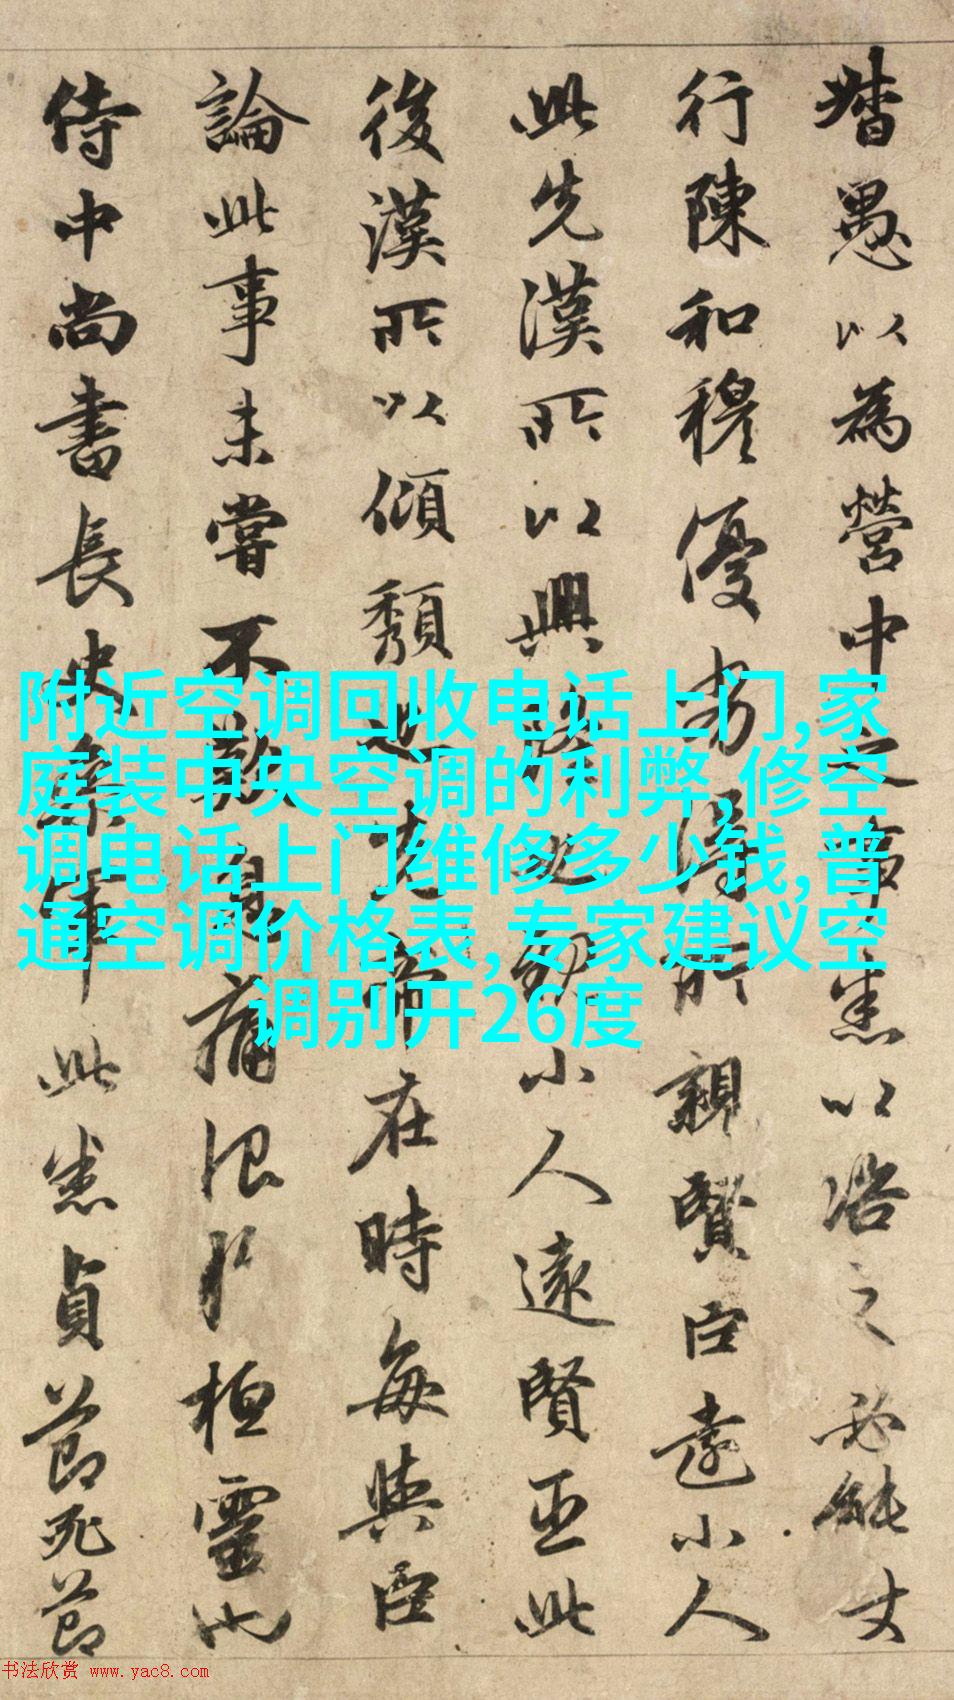 督愚以為營中之事悉以之必能丈
行陳和穆優劣得所親賢臣遠小人
此先漢所以興隆也親小人遠賢臣此
後漢所以傾頹也先帝在時每與臣
論此事未嘗不歎息痛恨於桓靈也
侍中尚書長史參軍此悉貞節死節
附近空调回收电话上门,家
庭装中央空调的利弊,修空
调电话上门维修多少钱,普
通空调价格表,专家建议空
调别开26度
书法欣赏 www.yac8.com